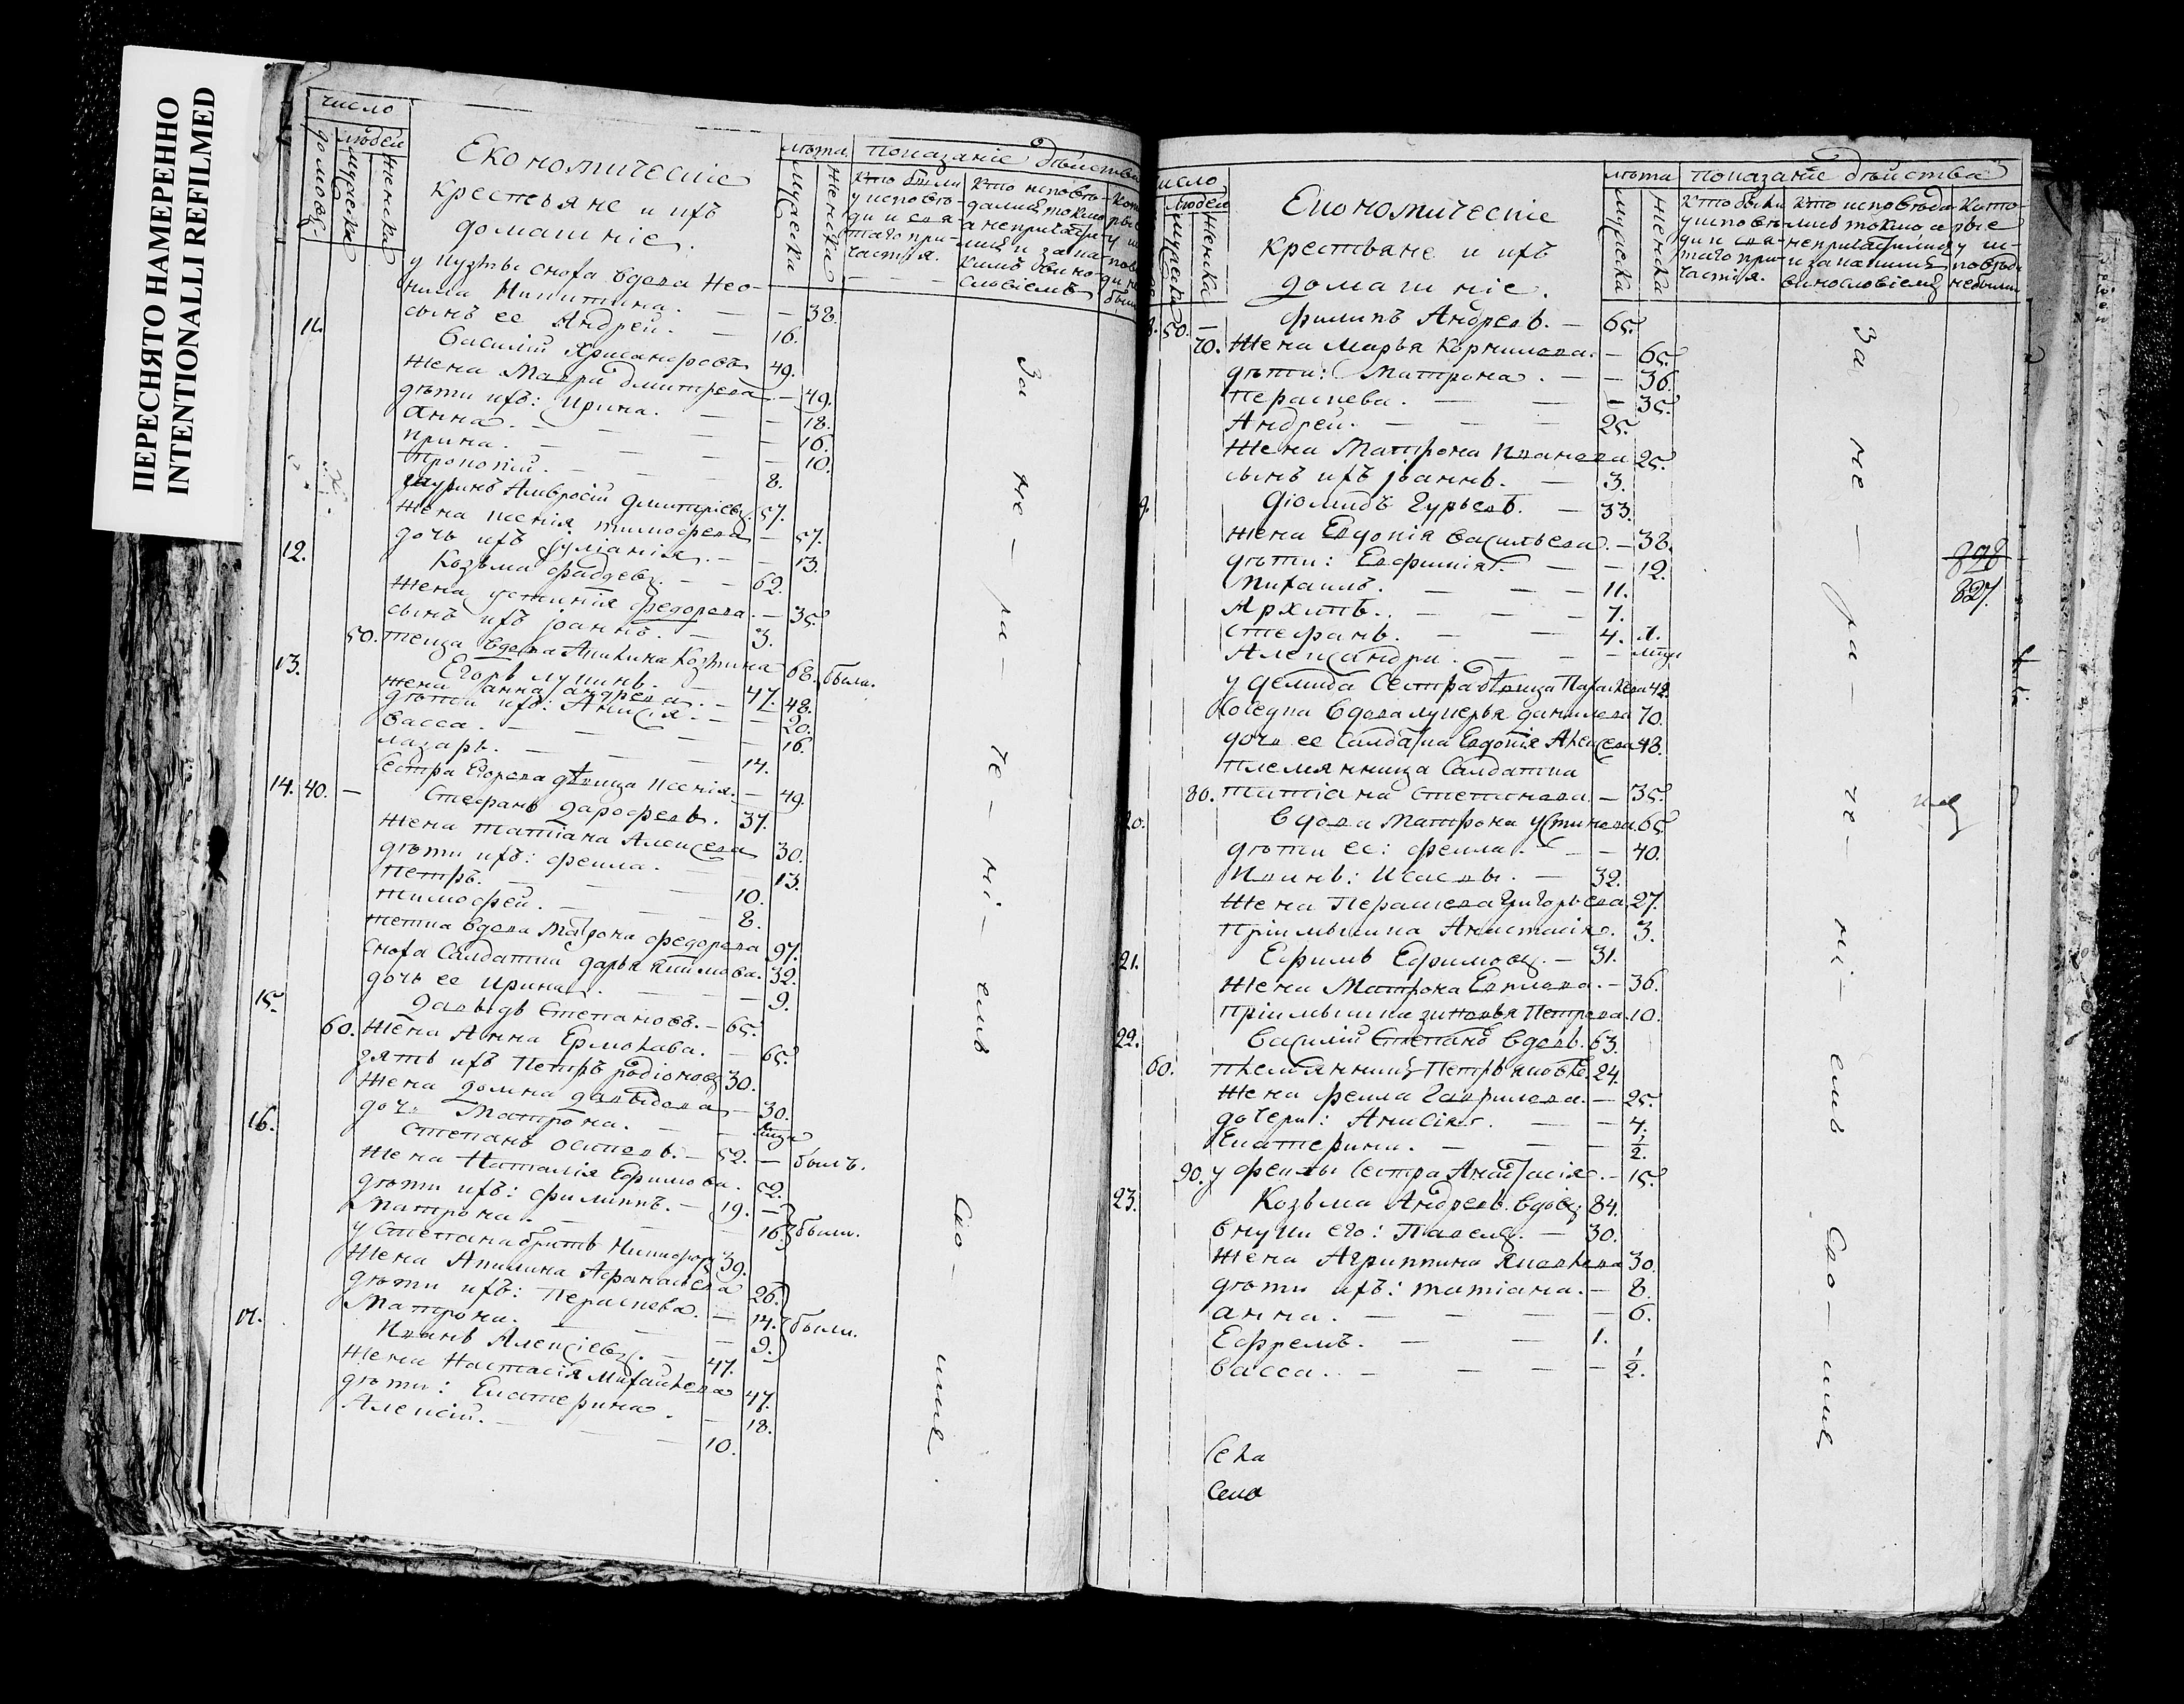 ПЕРЕСНЯТО НАМЕРЕННО
INTENTIONALLI REFILMED
число
людей
домовъ
мужеска
женска
Економическіе
крестьяне и ихъ
домашніе.
лѣта
мужеска
женска
показаніе дѣйства
кто были у исповѣди и святаго причастія.
у Кузмы сноха вдова Нео-
нила Никитина. — — 38.
сынъ ее Андрей. — 16.
11. Василій Хрисанфовъ 49.
жена Мавра Дмитрева — 49.
дѣти ихъ: Ирина. — — 18.
Анна. — — — 16.
Ирина. — — — 10.
Прокопій. — — 8.
шуринъ Амвросій Дмитріевъ 57.
жена Ксенія Тимофеева — 57.
дочь ихъ Іуліанія. — — 13.
12. Козьма Фадѣевъ. — — 62.
жена Устинія Федорова. — 35.
сынъ ихъ Іоаннъ. — 3.
50. теща вдова Акилина Козмина 68. были.
13. Егоръ Лукинъ. — 47.
жена Анна Андреева. — 48.
дѣти ихъ: Анисія. — — 20.
Васса. — — — 16.
Лазарь. — — 14.
сестра Егорова дѣвица Ксенія. — 49.
14. 40. — Стефанъ Дарофеевъ. 37.
жена Татіана Алексеева 30.
дѣти ихъ: Фекла. — — 13.
Петръ. — — 10.
Тимофей. — — 8.
тетка вдова Матрона Федорова 97.
сноха салдатка Дарья Якимова. 32.
дочь ее Ирина. — — 9.
15. Давыдъ Степановъ. — 65.
60. жена Анна Ермолаева. — 65.
зять ихъ Петръ Родіоновъ 30.
жена Домна Давыдова — 30.
дочь Матрона. —
16. Степанъ Осиповъ. — 52. — былъ.
жена Наталія Ефимова. 52.
дѣти ихъ: Филиппъ. — 19. —
Матрона. — — 16. были.
у Степана братъ Никифоръ 39.
жена Акилина Афанасьева 26.
дѣти ихъ: Пераскева. — 14. были.
Матрона. — — 9.
17. Иванъ Алексіевъ. — 47.
жена Настасія Михайлова 47.
дѣти: Екатерина. — 18.
Алексій. — — 10.
За — не — ра — че — ні — емъ
Ско — имъ.
число
людей
мужеска
женска
Економическіе
крестьяне и ихъ
домашніе.
лѣта
мужеска
женска
показаніе дѣйства
кто были у исповѣди и святаго причастія.
кто исповѣдались токмо а не причастились и за какимъ винословіемъ
которые у исповѣди небыли
8. 50. — Филипъ Андреевъ. — 65.
70. жена Марья Корнилова. — 65.
дѣти: Матрона. — — 36.
Пераскева. — — — 35.
Андрей. — — — 25.
жена Матрона Иванова 25.
сынъ ихъ Іоаннъ. — 3.
9. Діомидъ Гурьевъ. — 33.
жена Евдокія Васильева. — 38.
дѣти: Евфимія. — — 12.
Михаилъ. — — — 11.
Архипъ. — — — 7.
Стефанъ. — — 4.
Александра. — — —
у Демида сестра дѣвица Параскева 42.
соседка вдова Лукерья Данилова 70.
дочь ее салдатка Евдокія Алексеева 48.
племянница салдатка
80. Татіана Степанова — 35.
20. вдова Матрона Устинова 65.
дѣти ее: Фекла. — — 40.
Иванъ: Исаевы. — 32.
жена Пераскева Григорьева 27.
пріимышка Анастасія. 3.
21. Ефимъ Ефимовъ. — 31.
жена Матрона Евплова. — 36.
пріимышка Зиновья Петрова. 10.
22. Василій Степанъ вдовъ. 63.
60. племянникъ Петръ Яковле. 24.
жена Фекла Гаврилова. — 25.
дочери: Анисія. — — 4.
Екатерина. — — — 1/2.
90. у Феклы сестра Анастасія. — 15.
23. Козьма Андреевъ вдовъ. 84.
внуки его: Павелъ. — 30.
жена Агриппина Яковлева 30.
дѣти ихъ: Татіана. — 8.
Анна. — — — 6.
Ефремъ. — — 1.
Васса. — — — 1/2.
Села
Села
За — не — ра — че — ні — емъ
Ско — имъ
898
827.